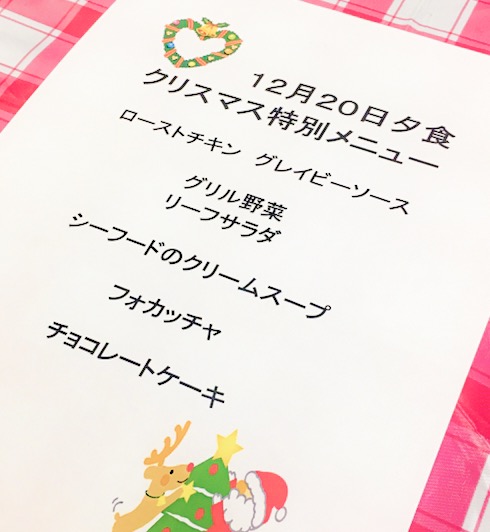 12月20日夕食
クリスマス特別メニュー
ローストチキン グレイビーソース
グリル野菜
リーフサラダ
シーフードのクリームスープ
フォカッチャ
チョコレートケーキ